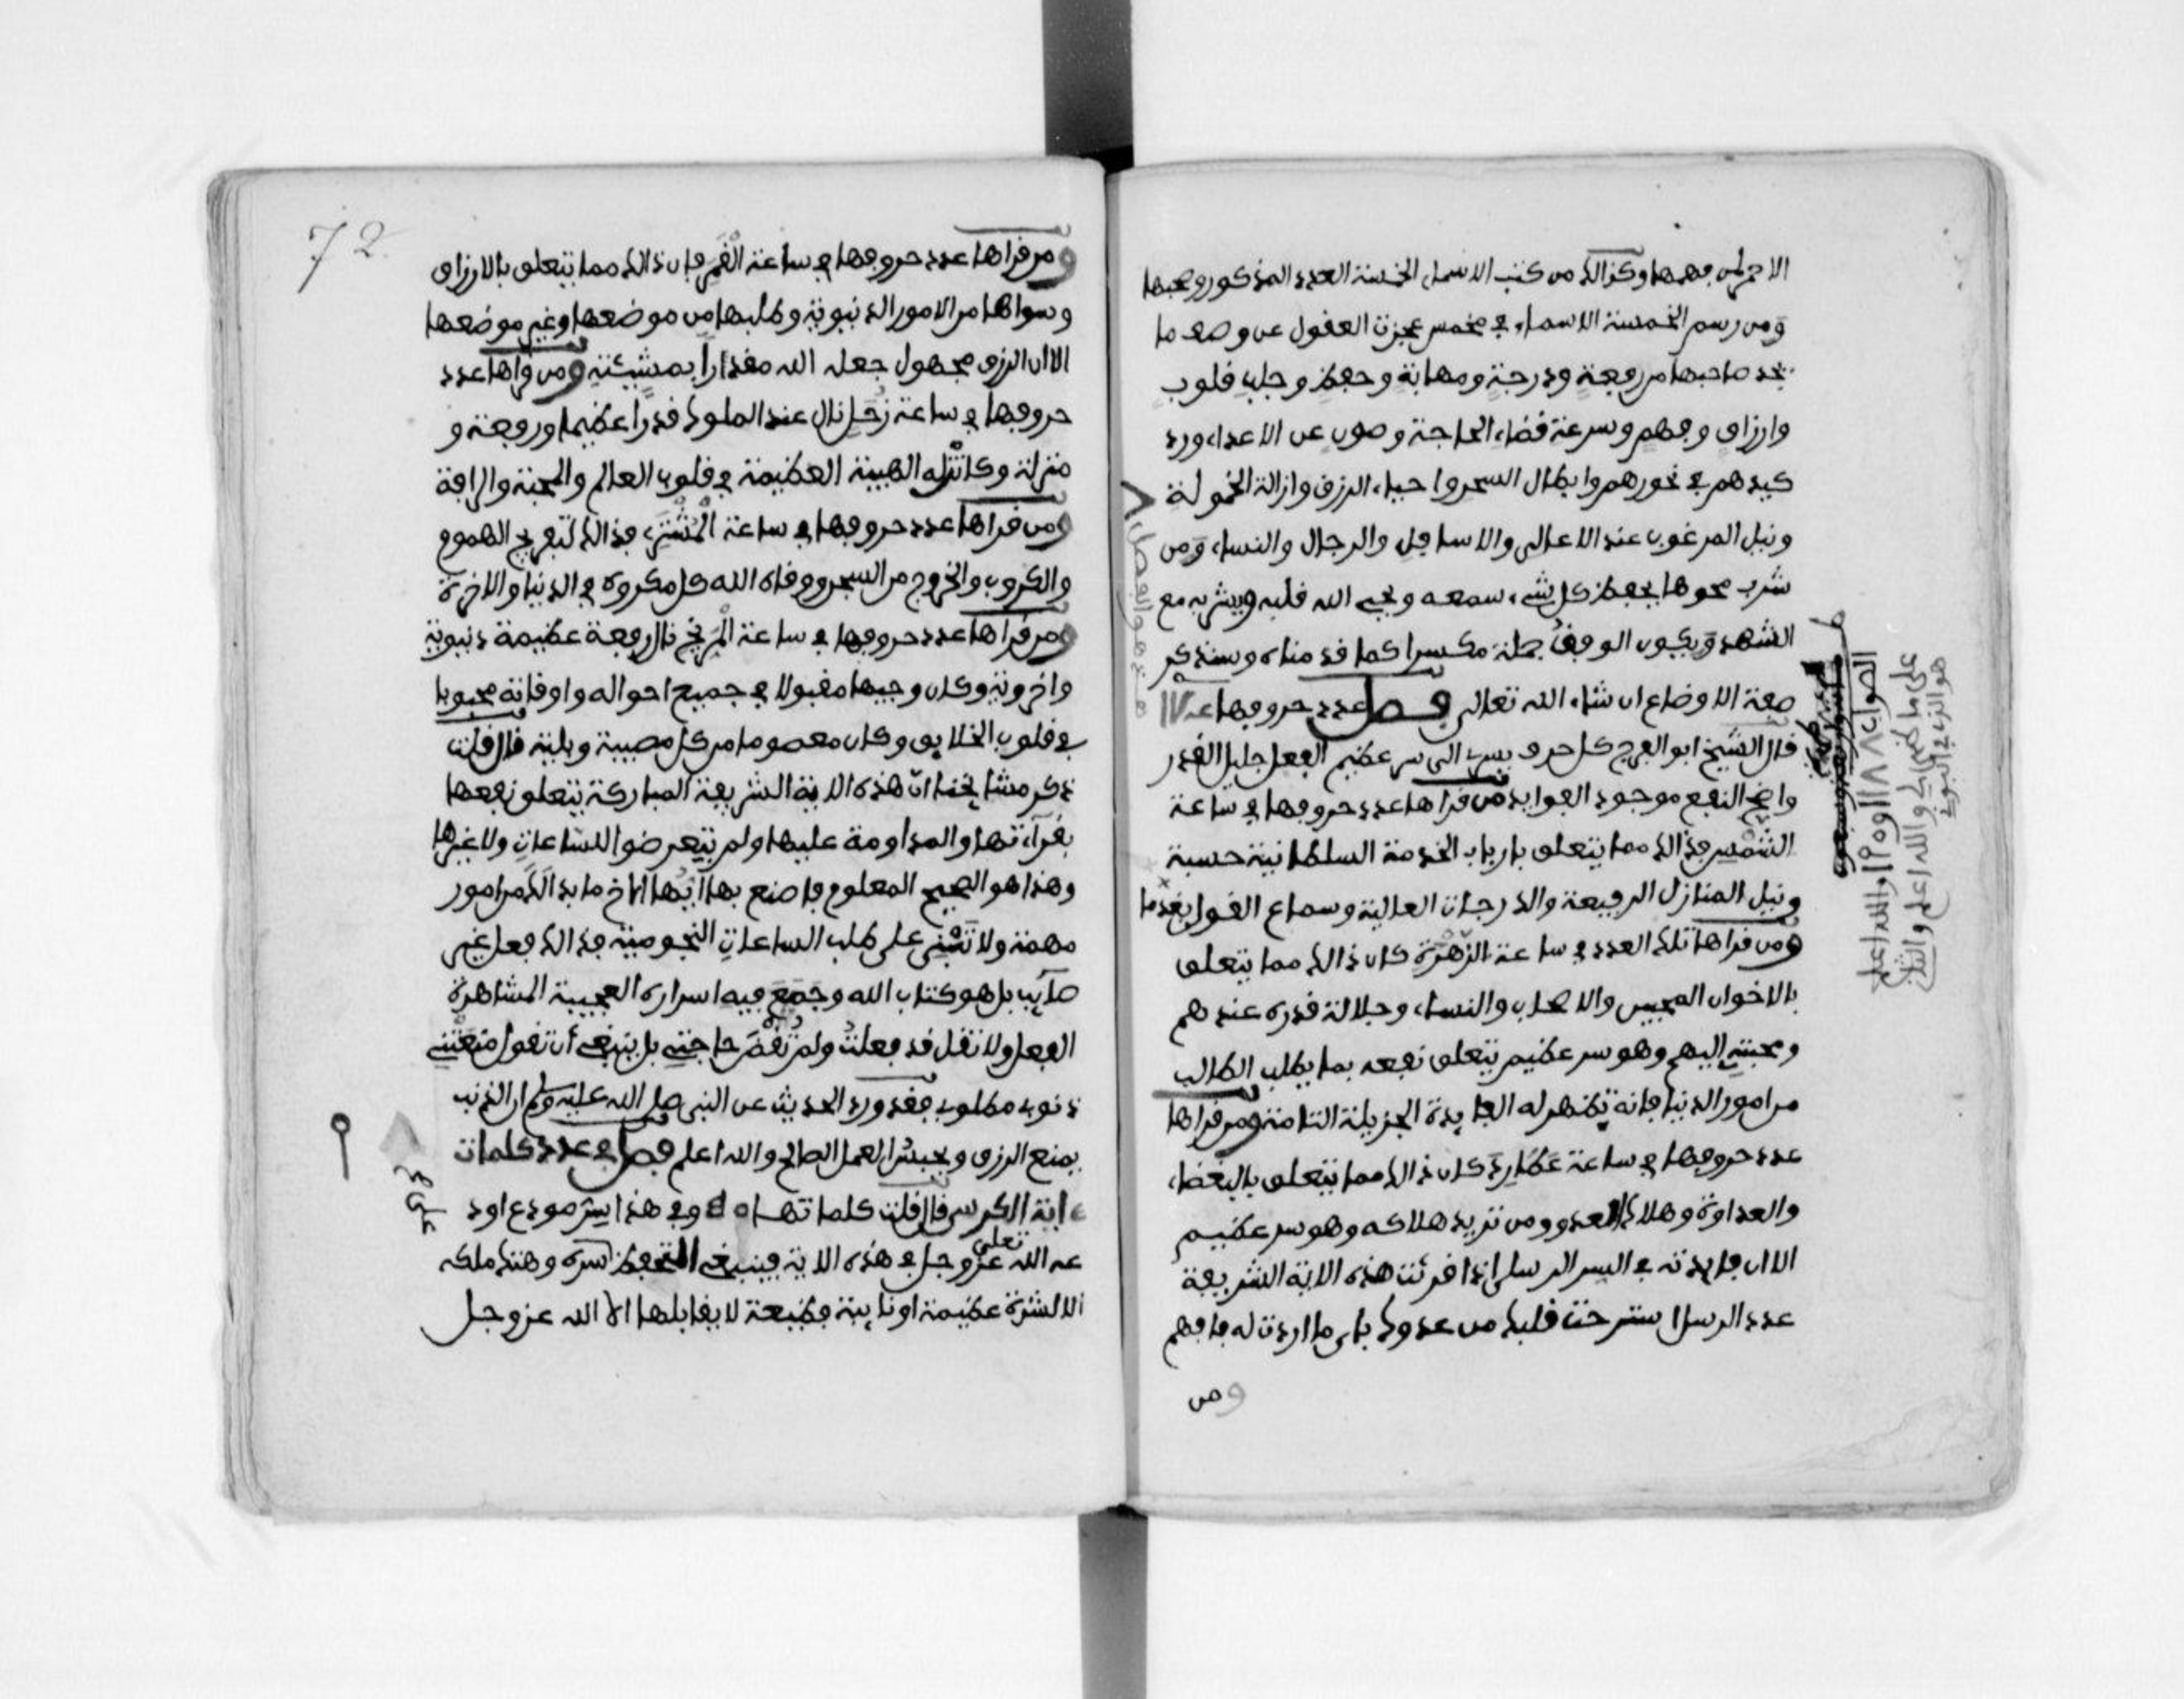 الا من لمن فهمها وكذالك من كتب الاسماء الخمسة العدد المذكور وصحبها
وَمن رسم الخمسة الاسماء في مخمس عجزت العقول عن وصف ما
يجد صاحبها من رفعةٍ ودرجةٍ ومهابةٍ وحفظٍ وجلبِ قلوب
وارزاقٍ وفهمٍ وسرعة قضاء الحاجة وصون عن الاعداء ورد
كيدهم في نحورهم وابطال السحر واحياء الرزق وازالة الخمولة
ونيل المرغوب عند الاعالى والاسافل والرجال والنساء وَمن
شرب محوها يحفظ كل شىء سمعه ويحيى الله قلبه ويشربه مع
الشهد وَيكون الوفق جملة مكسرا كما قدمناه وسنذكر
صفة الاوضاع ان شاء الله تعالى فصل عدد حروفها
قال الشيخ ابو الفرج كل حرف يسرى الى سر عظيم الفعل جليل القدر
واضح النفع موجود الفوايد من قراها عدد حروفها في ساعة
الشمس فذالك مما يتعلق بارباب الخدمة السلطانية حسبة
ونيل المنازل الرفيعة والدرجات العالية وسماع القول
ومن قراها تلك العدد في ساعة الزُّهْرَة كان ذالك مما يتعلق
بالاخوان المحبين والاصحاب والنساء وجلالة قدره عندهم
ومحبتهِ اليهم وهو سر عظيم يتعلق نفعه بما يطلب الطالب
من امور الدنيا فانه تظهر له الفايدة الجزيلة التامة ومن قراها
عدد حروفها في ساعة عَطَارِدَ كان ذالك مما يتعلق بالبغضاء
والعداوة وهلاك العدو ومن تريد هلاكه وهو سر عظيم
الا ان فايدته في السر الرسلى اذا قرئت هذه الاية الشريفة
عدد الرسل استرحت قلبك من عدوك باى ما اردت له فافهم
ومن
الصواب
والله اعلم
72
ومن قراها عدد حروفها في ساعة الْقَمَرِ فان ذالك مما يتعلق بالارزاق
وسواها من الامور الدنيوية وطلبها من موضعها وغير موضعها
الا ان الرزق مجهول جعله الله مقداراً بمشيئتهِ ومن قراها عدد
حروفها في ساعة زُحَل نال عند الملوك قدرًا عظيما ورفعة و
منزلة وكانت له الهيبة العظيمة في قلوب العالم والمحبة والرافة
ومن قراها عدد حروفها في ساعة الْمُشْتَرِى فذالك لتفريج الهموم
والكروب والخروج من السجن ووقاه الله كل مكروه في الدنيا والاخرة
ومن قراها عدد حروفها في ساعة الْمَرِّيخ نال رفعة عظيمة دنيوية
واخروية وكان وجيها مقبولا في جميع احواله واوقاته محبوبا
في قلوب الخلايق وكان معصوما من كل مصيبة وبلية قال قلت
ذكر مشايخنا انّ هذه الاية الشريفة المباركة يتعلق نفعها
بقرآءتها والمداومة عليها ولم يتعرضوا للسَّاعاتِ ولا غيرها
وهذا هو الصحيح المعلوم فاصنع بها ايّها الاخ ما بدا لَك من امور
مهمة ولا تَبْنى على طلب الساعات النجومية فذالك فعل غير
صآيب بل هو كتاب الله وجَمَعَ فيه اسراره العجيبة المشاهرة
الفعل ولا تقل قد فعلتُ ولم تُقْضَ حاجتى بل ينبغى أن تقول مَنَعَتْنى
ذنوب مطلوبى فقد ورد الحديث عن النبى صلى الله عليه وسلم ان الذنب
يمنع الرزق ويحبس العمل الصالح والله اعلم فصل في عدد كلمات
ءاية الكرسى قال قلت كلماتها ٥٠ وفي هذا سر مودع اود
عه الله تعلى عز وجل في هذه الاية فينبغى التحفظ سره وهتك ملكه
الا لشدة عظيمة او نايبة فظيعة لا يقابلها الا الله عز وجل